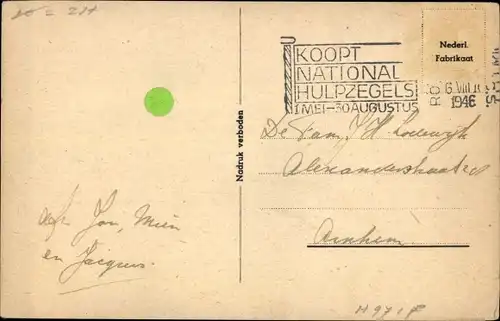 KOOPT
NATIONAL
HULPZEGELS
1 MEI-30 AUGUSTUS
6 VIII
1946
Nederl.
Fabrikaat
Nadruk verboden
De Fam. J.H. Lodewijk
Alexanderstraat
Arnhem
afz Jan, Mien
en Jacques.